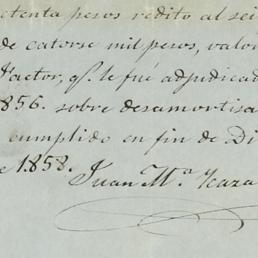 chenta pesos redito al sei
de catorse mil pesos, valor
Factor, q.e le fué adjudicad
856. sobre desamortisa
cumplido en fin de Di
e 1858.
Juan M.a Icaza